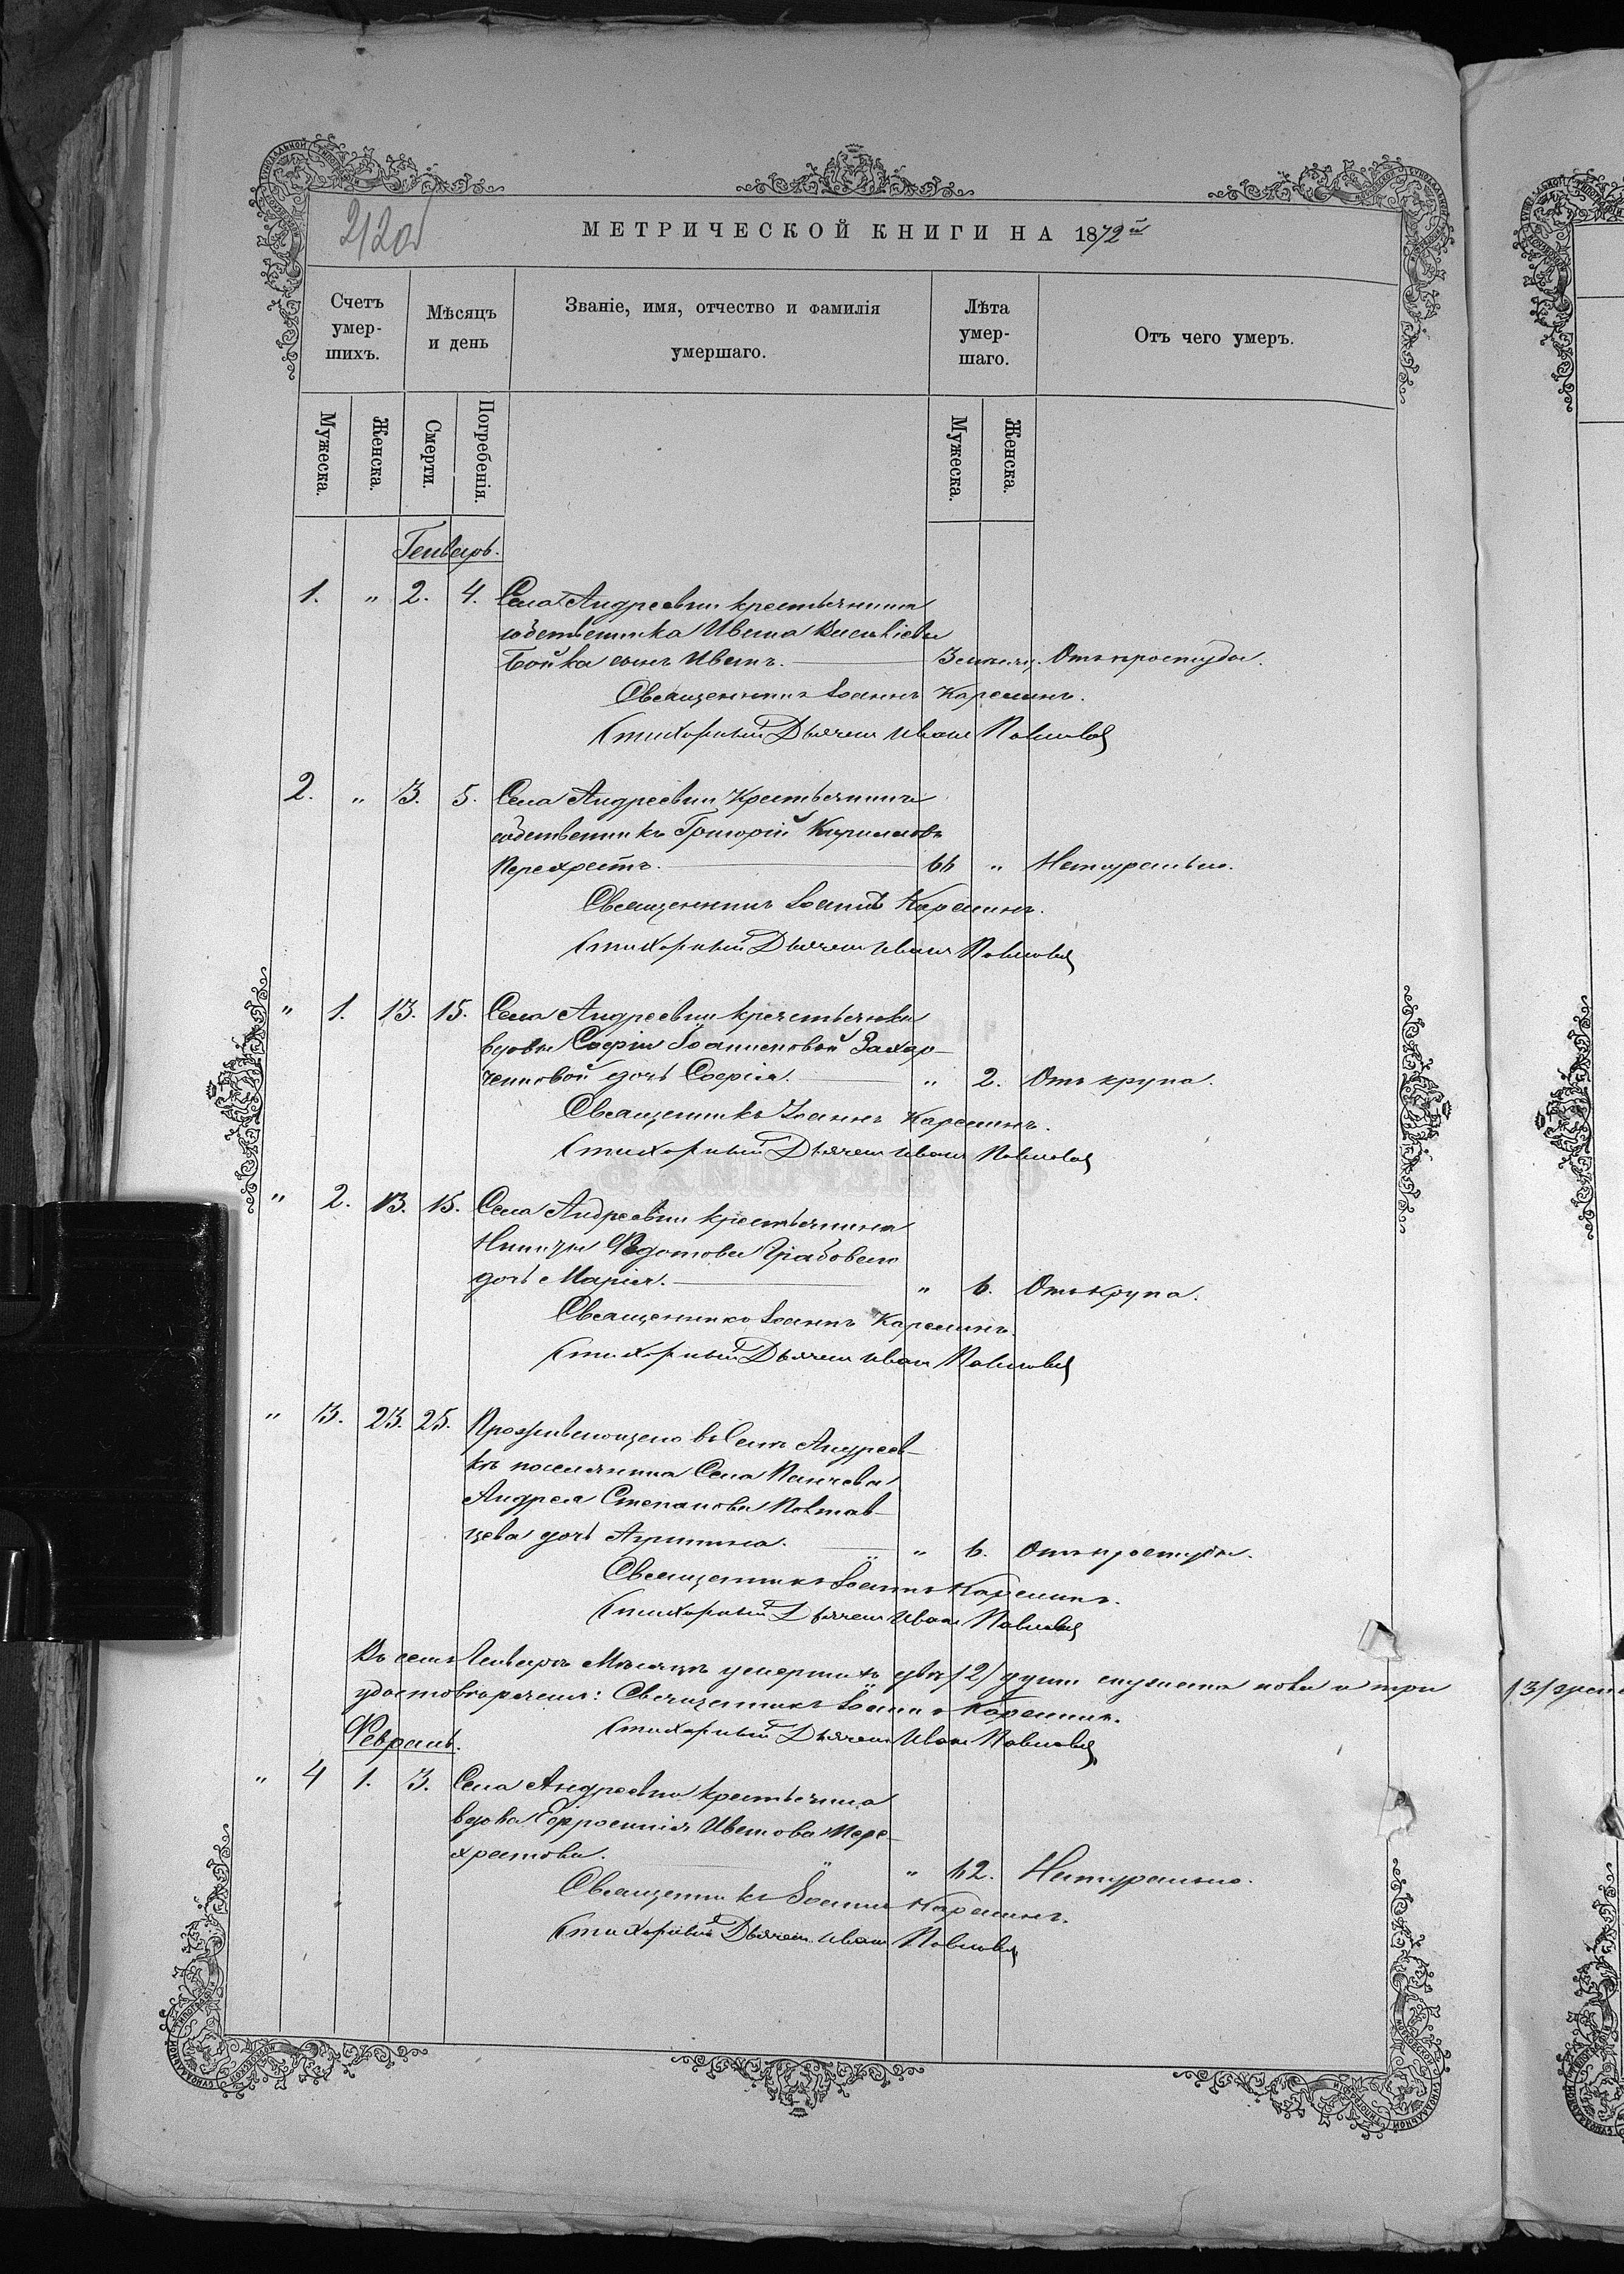 212 об
МЕТРИЧЕСКОЙ КНИГИ НА 1872й
Счетъ умер-шихъ.
Мѣсяцъ и день
Званіе, имя, отчество и фамилія умершаго.
Лѣта умер-шаго.
Отъ чего умеръ.
Мужеска.
Женска.
Смерти.
Погребенія.
Мужеска.
Женска.
Генварь.
1. " 2. 4. Села Андреевки крестьянина
собственника Ивана
Бойка сынъ Иванъ. Отъ простуды.
Священникъ Іоаннъ Карелинъ.
Стихарный Дьячекъ Иванъ
2. " 3. 5. Села Андреевки крестьянинъ
собственникъ Григорій Кириловъ
Перехрестъ. 66 " Натурально.
Священникъ Іоаннъ Карелинъ.
Стихарный Дьячекъ Иванъ
" 1. 13. 15. Села Андреевки крестьянки
вдовы Софіи Іоанновой Захар-
ченковой дочь Софія. " 2. Отъ крупа.
Священникъ Іоаннъ Карелинъ.
Стихарный Дьячекъ Иванъ
" 2. 13. 15. Села Андреевки крестьянина
Никиты Федотова
дочь Марія. " 6. Отъ крупа.
Священникъ Іоаннъ Карелинъ.
Стихарный Дьячекъ Иванъ
" 3. 23. 25. Проживающаго въ Селѣ Андреев-
кѣ поселянина Села Панчева
Андрея Степанова Полтав-
цева дочь " 6. Отъ простуды.
Священникъ Іоаннъ Карелинъ.
Стихарный Дьячекъ Иванъ
Въ семъ Генварѣ Мѣсяцѣ умершихъ двѣ /2/ души мужеска пола и три /3/
удостовѣряемъ: Священникъ Іоаннъ Карелинъ.
Стихарный Дьячекъ Иванъ
Февраль.
" 4 1. 3. Села Андреевки крестьянка
вдова Евфросинія Иванова Пере-
хрестова. " 62. Натурально.
Священникъ Іоаннъ Карелинъ.
Стихарный Дьячекъ Иванъ